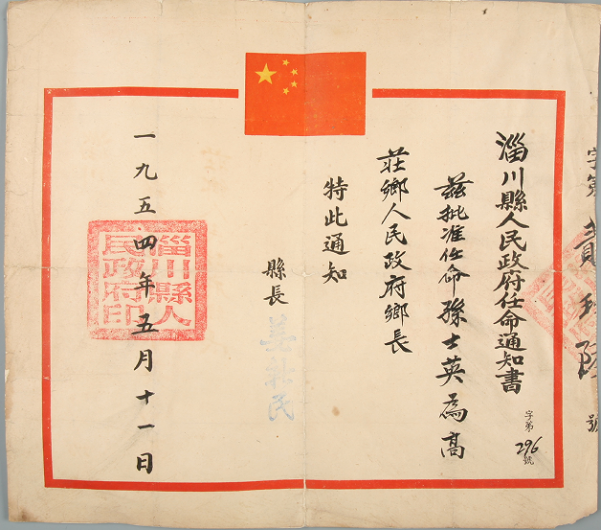 字第貳玖陸號
淄川縣人民政府任命通知書
字第296號
茲批准任命孫士英為高
莊鄉人民政府鄉長
特此通知
縣長
一九五四年五月十一日
淄川縣人
民政府印